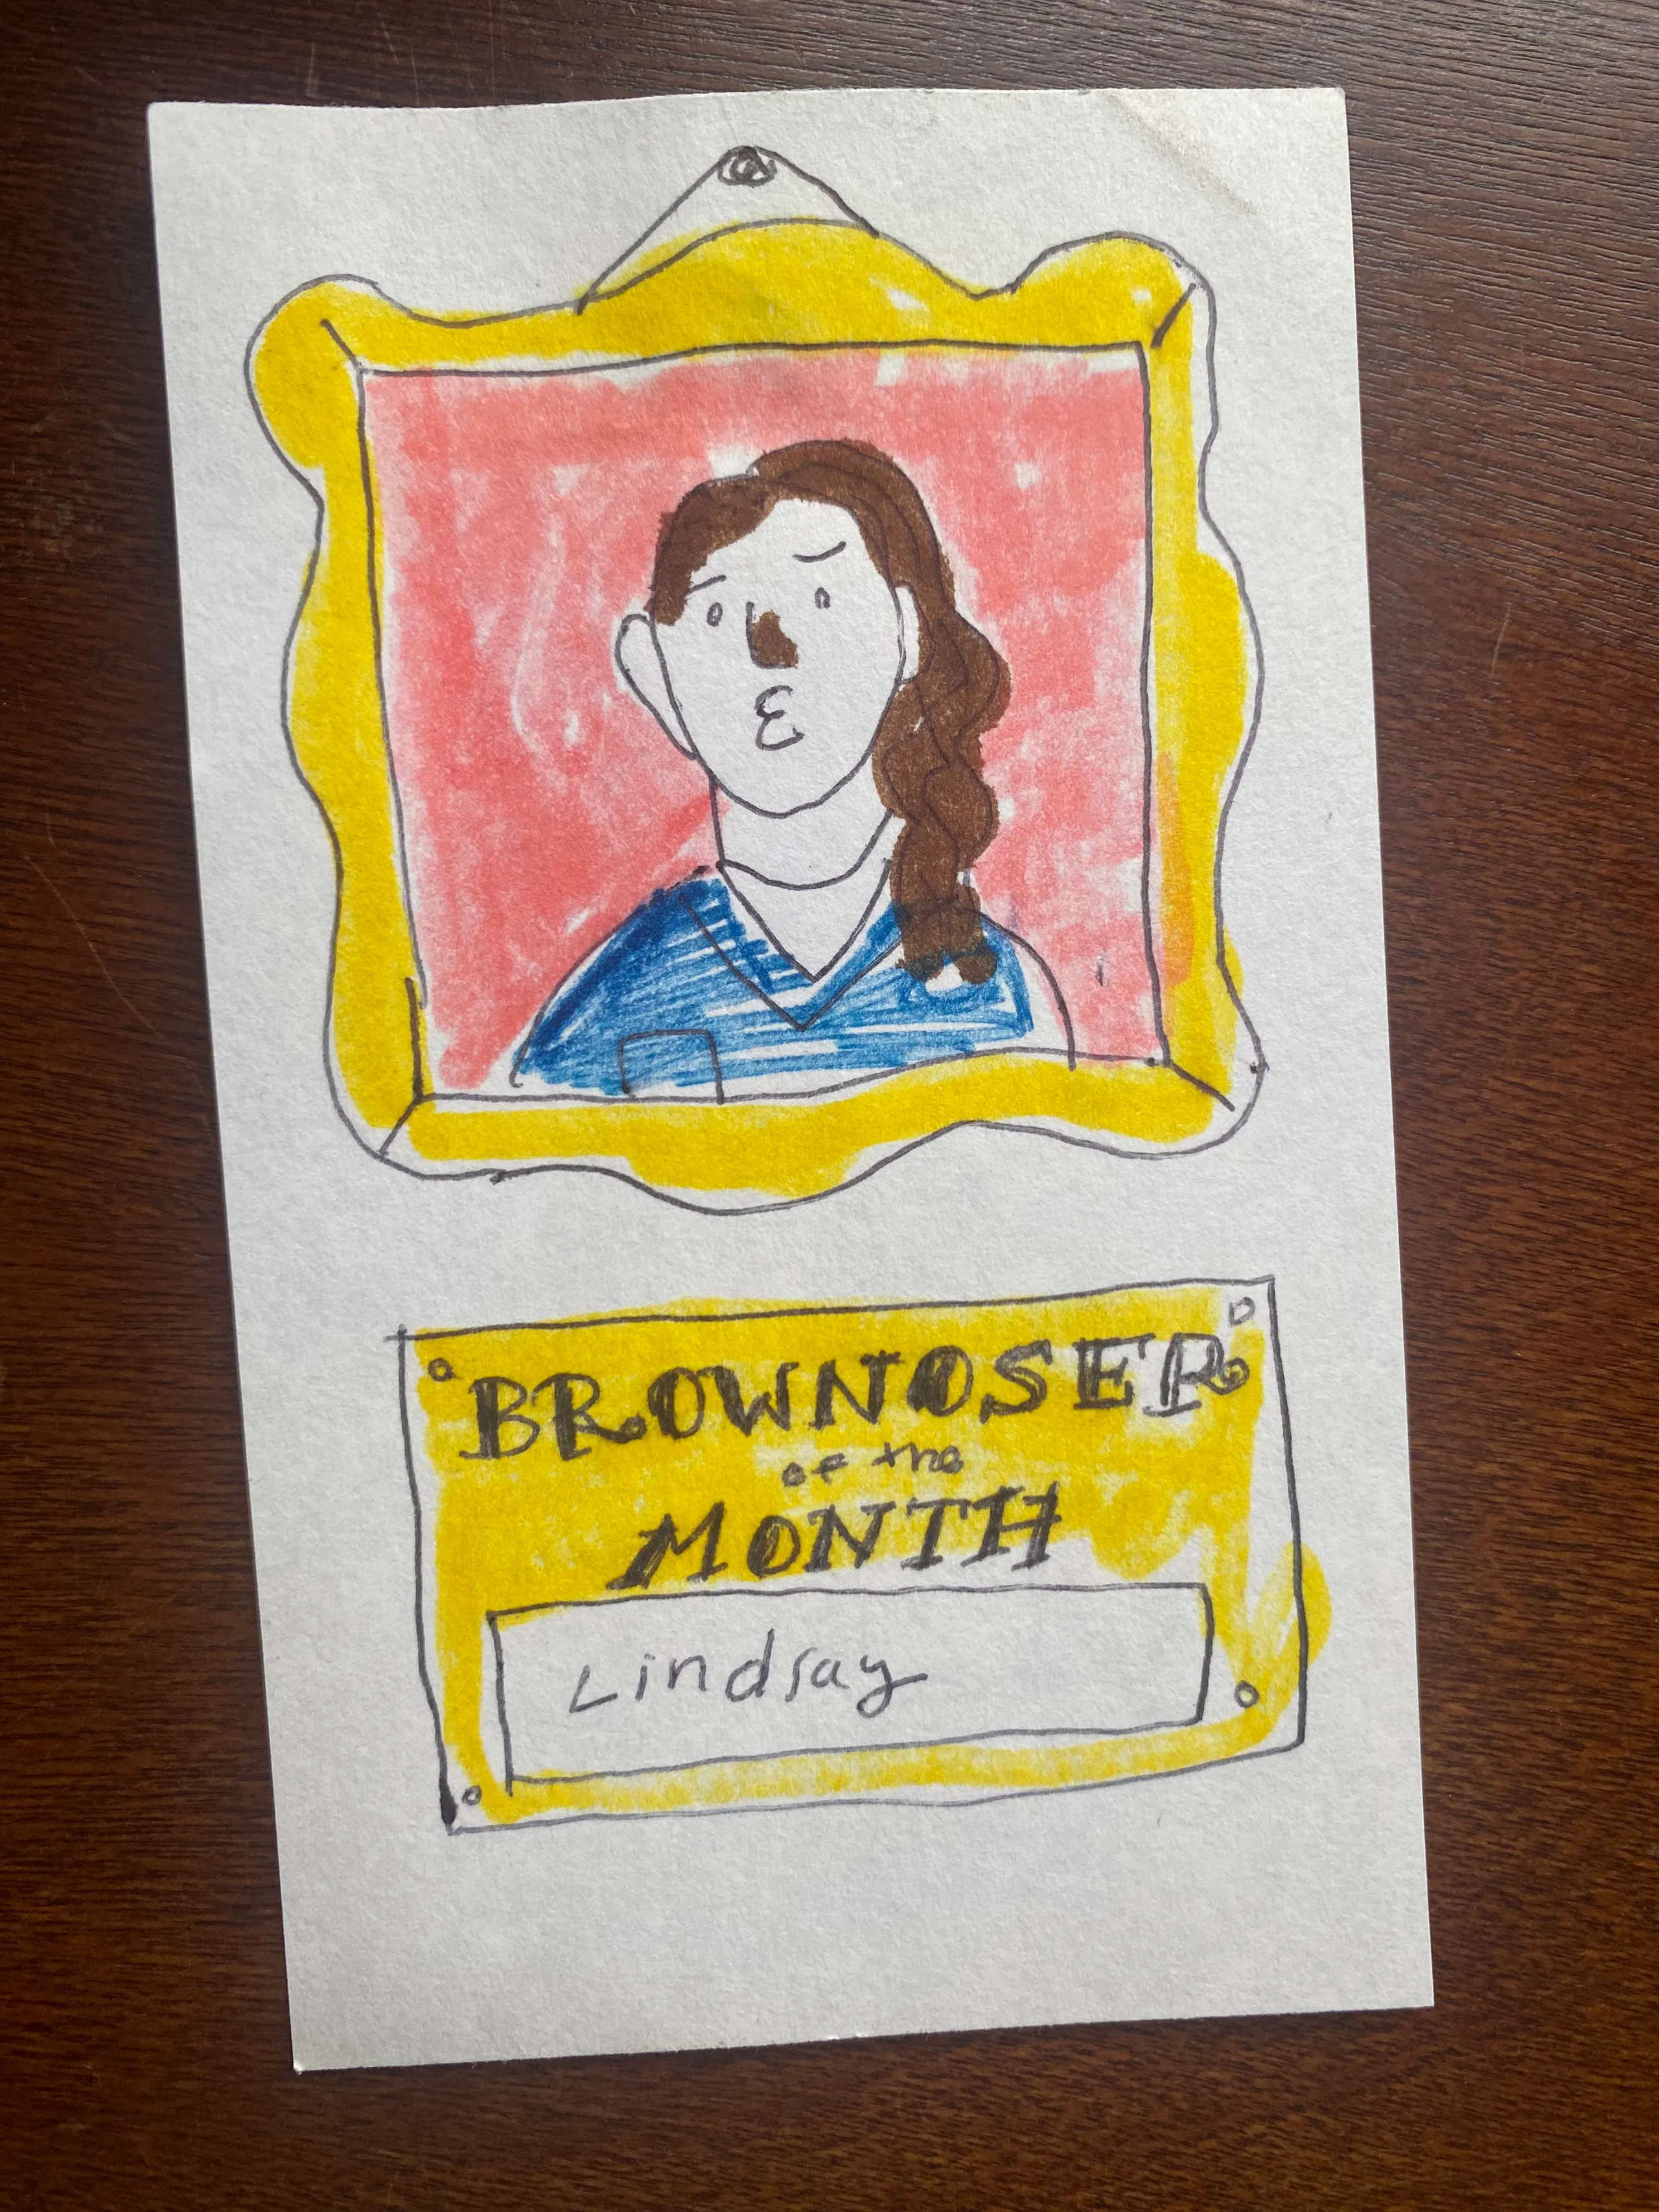 BROWNOSER
of the
MONTH
Lindsay